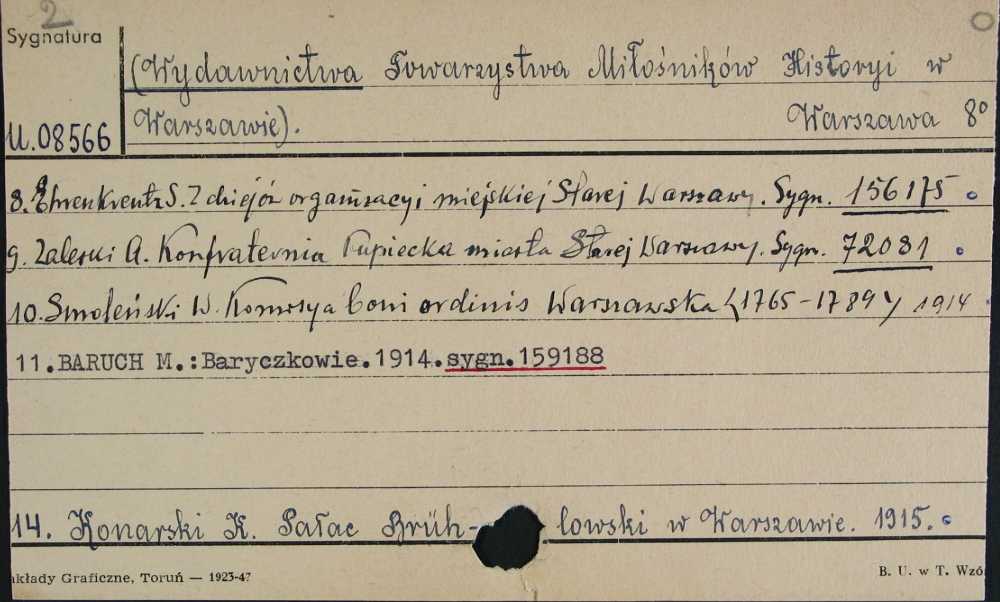 2
Sygnatura
(Wydawnictwa Towarzystwa Miłośników Historyi w
U.08566 Warszawie). Warszawa 8º
8. Ehrenkreutz S. Z dziejów organizacyi miejskiej Starej Warszawy. Sygn. 156175
9. Zaleski A. Konfraternia Kupiecka miasta Starej Warszawy. Sygn. 72081
10. Smoleński W. Komisya boni ordinis Warszawska (1765-1789) 1914
11.BARUCH M.:Baryczkowie.1914.sygn.159188
14. Konarski K. Pałac Brüh- lowski w Warszawie. 1915.
akłady Graficzne, Toruń — 1923-47 B. U. w T. Wzó